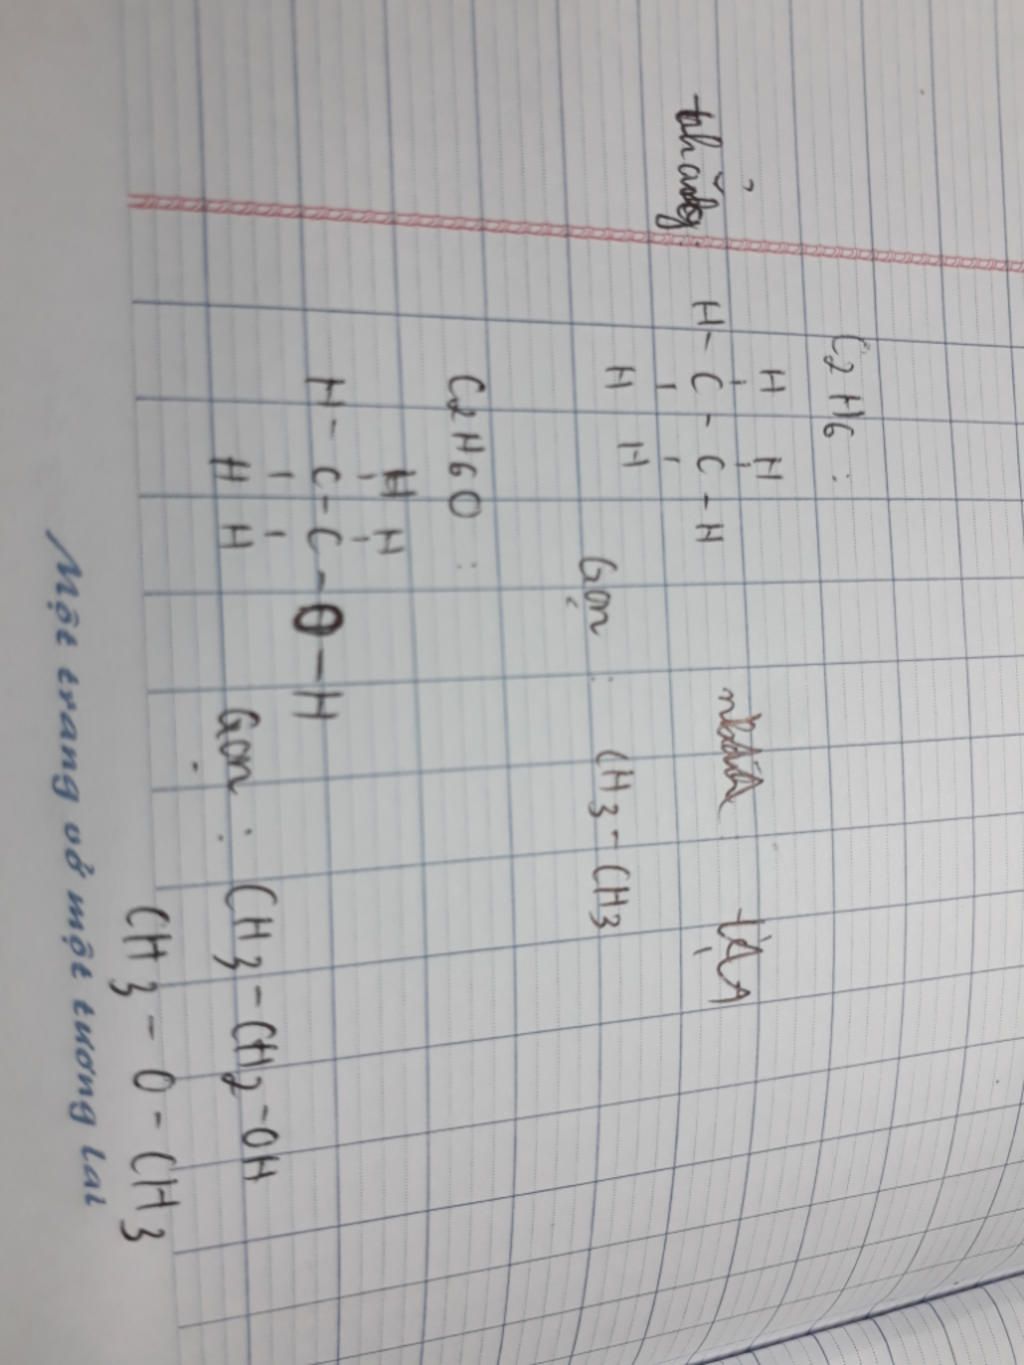 C2H6 :
H H
thẳng: H - C - C - H
H H
Gọn : CH3 - CH3
C2H6O :
H H
H - C - C - O - H
H H
Gọn : CH3 - CH2 - OH
CH3 - O - CH3
Một trang vở một tương lai